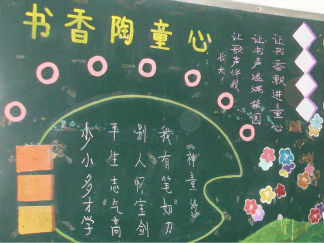 书香陶童心
让书香飘进童心
让书声溢满校园
让歌声伴我
长大
《神童诗》
少小多才学
平生志气高
别人怀宝剑
我有笔如刀